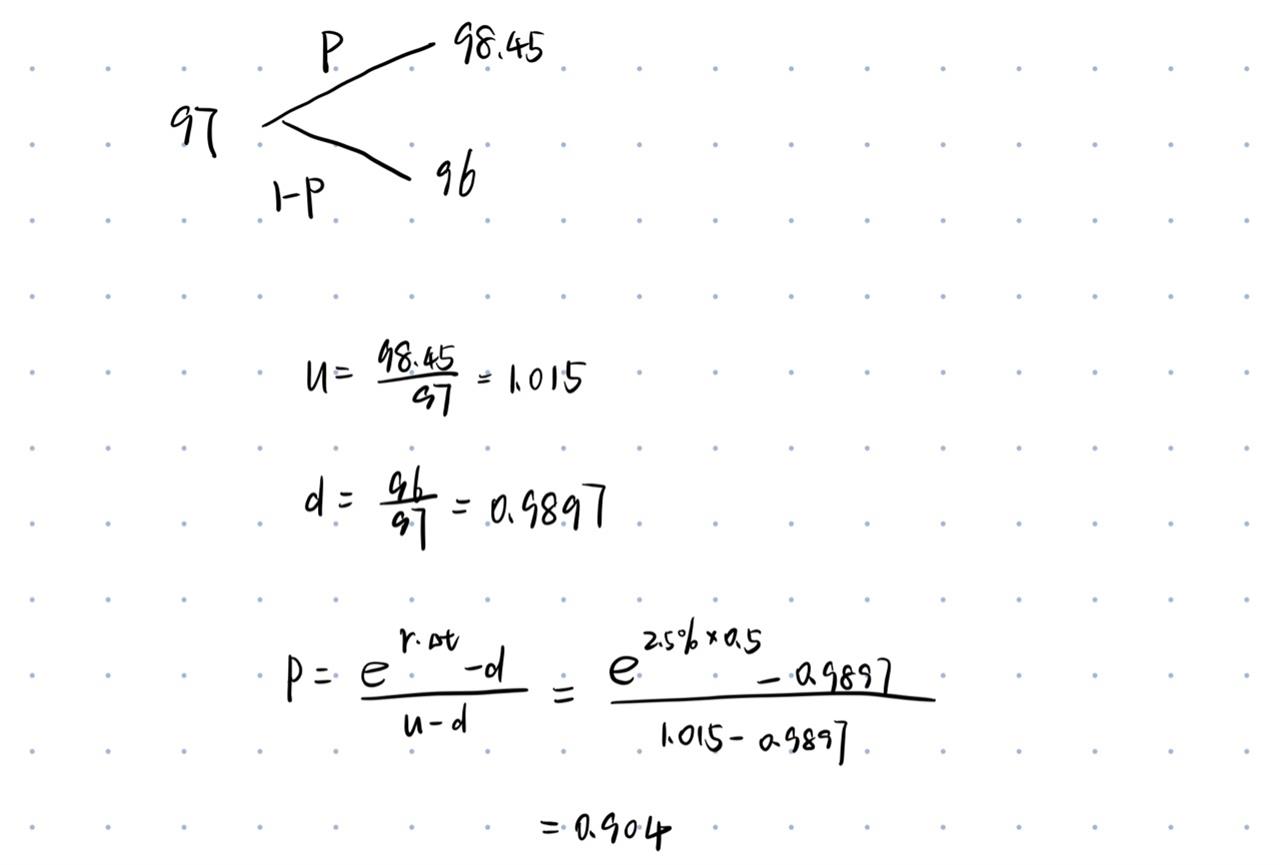 P 98.45
97
1-P 96
u = 98.45/97 = 1.015
d = 96/97 = 0.9897
P = (e^(r·Δt) - d)/(u - d) = (e^(2.5% × 0.5) - 0.9897)/(1.015 - 0.9897)
= 0.904